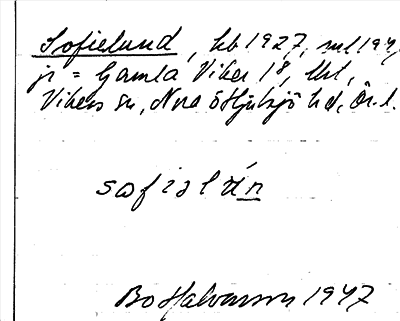 Sofielund, hb 1927, ml 1947,
jr = Gamla Viker 1⁸, lht,
Vikers sn, Nora o Hjulsjö hd, Ör. l.
sofiəlún
Bo Halvarsson 1947